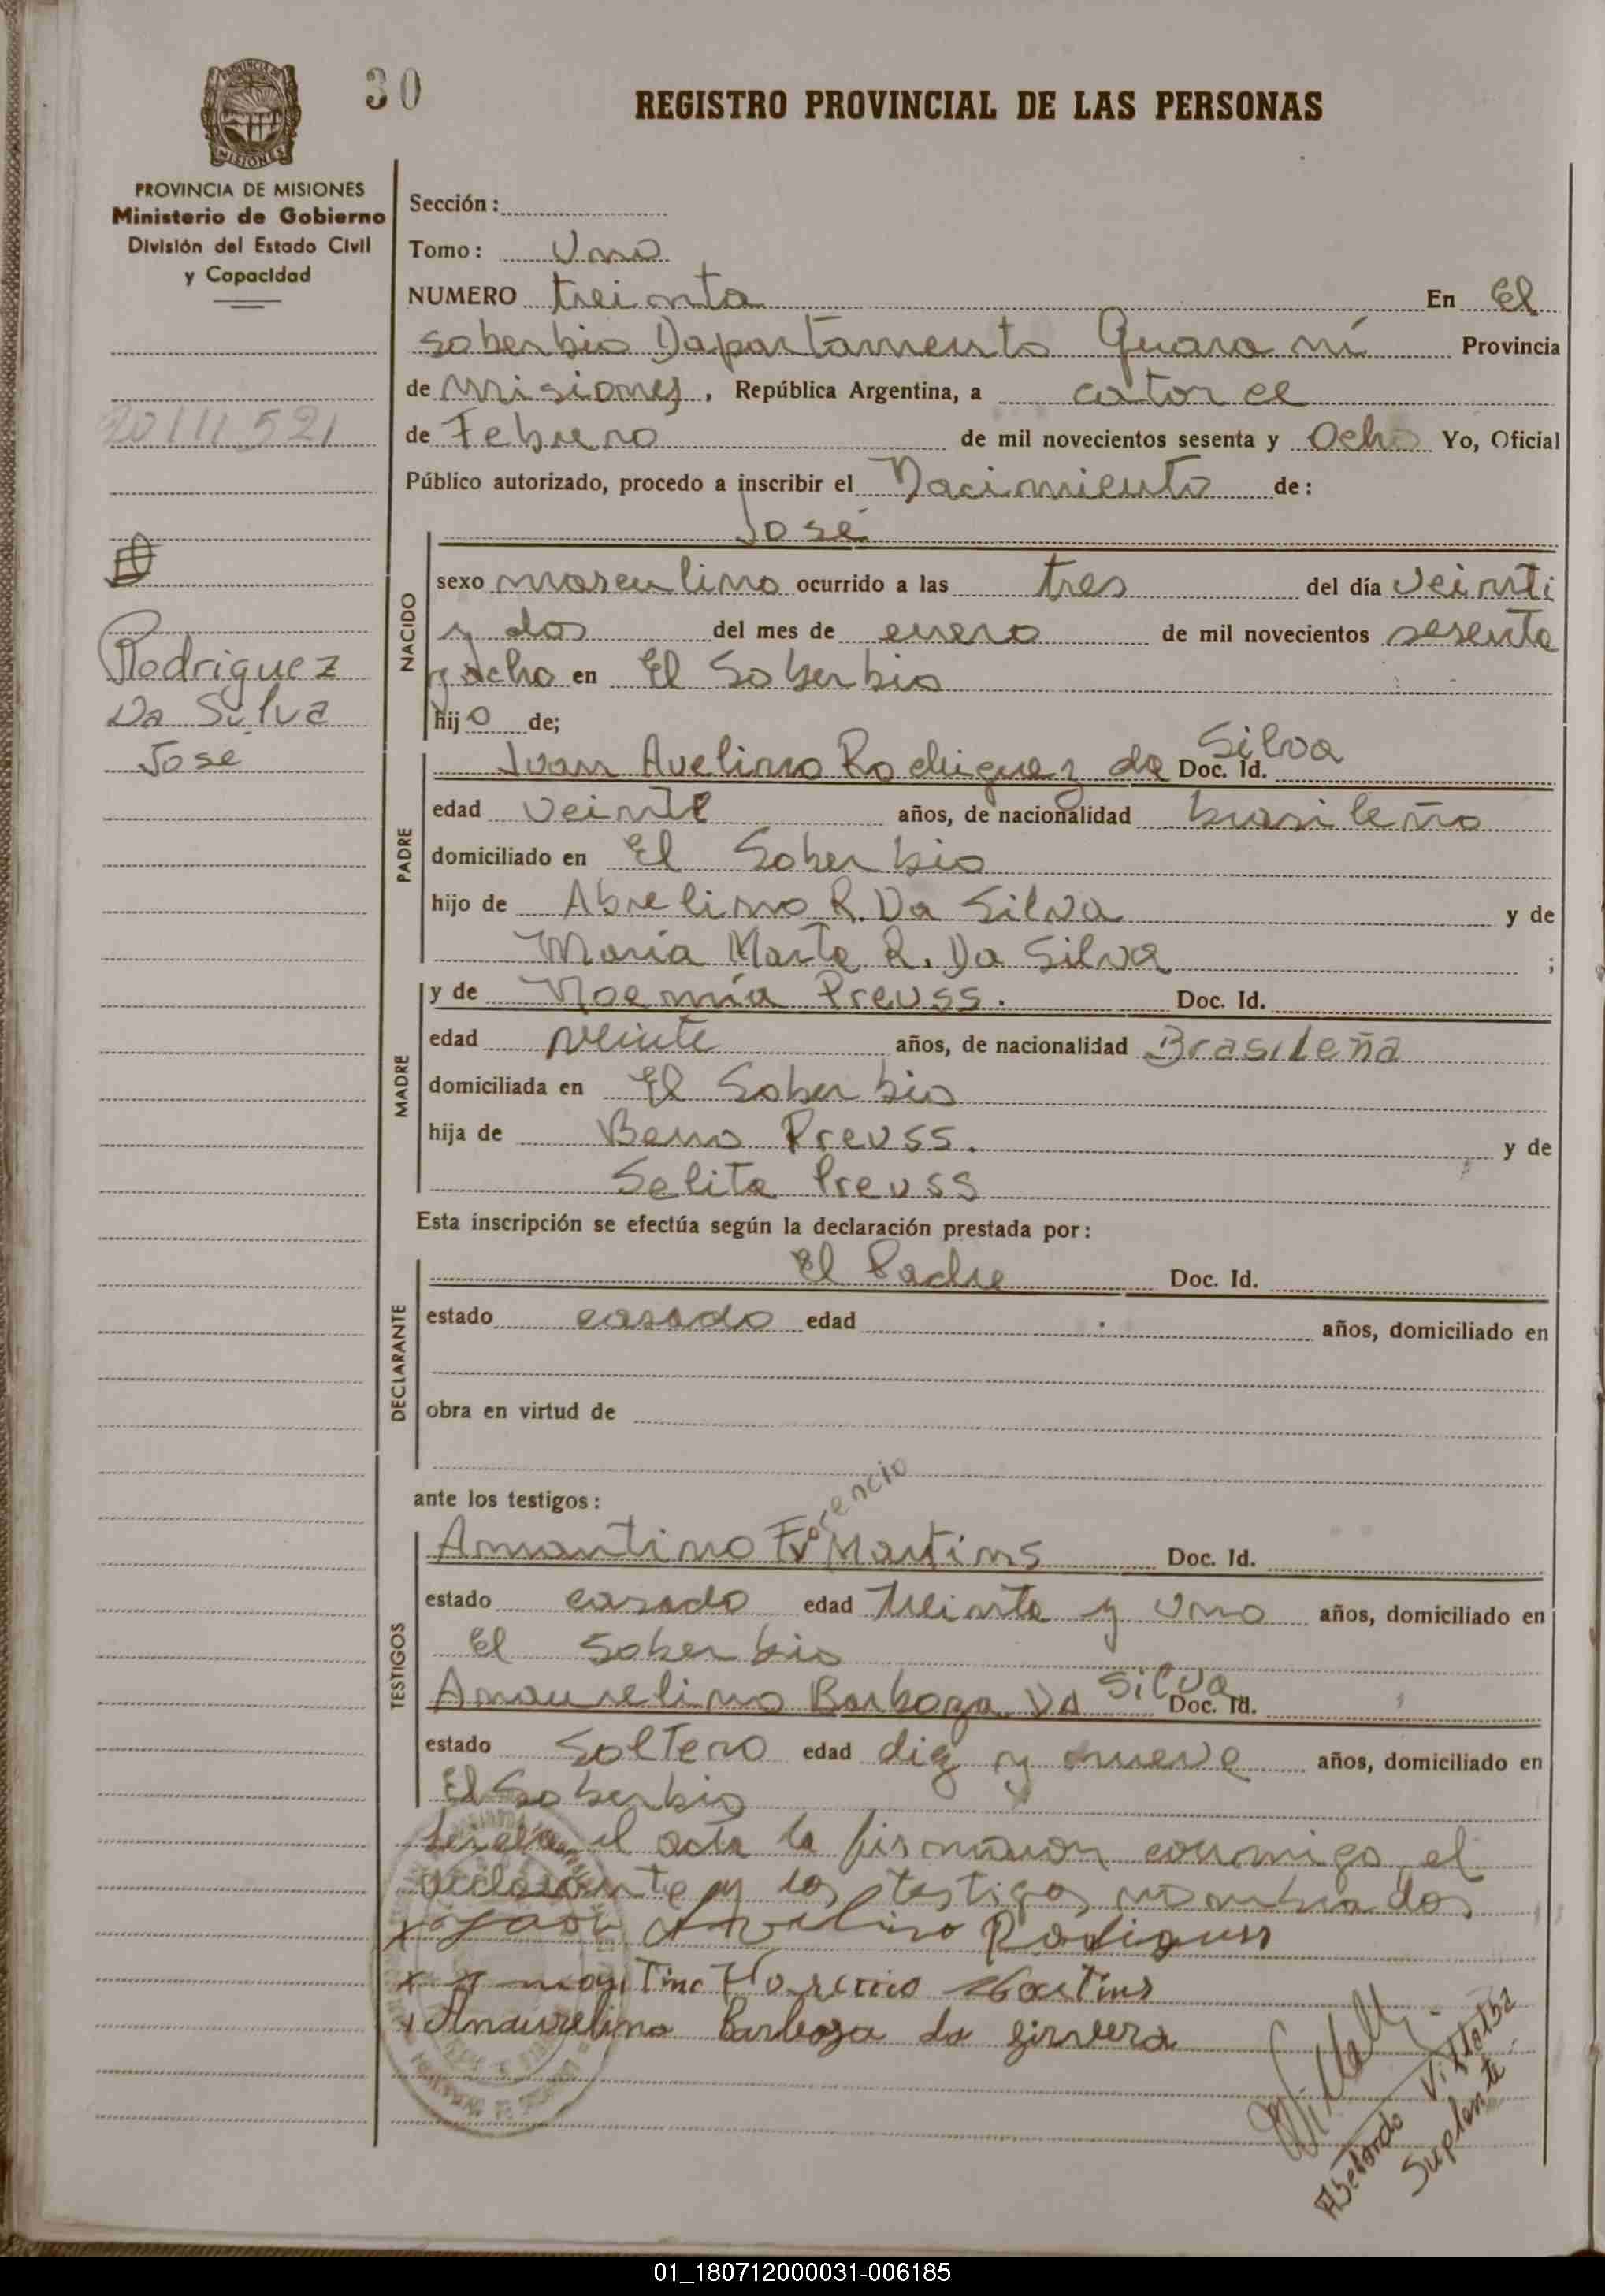 30
REGISTRO PROVINCIAL DE LAS PERSONAS
PROVINCIA DE MISIONES
Ministerio de Gobierno
División del Estado Civil
y Capacidad
20111521
Rodriguez
Da Silva
José
Sección:
Tomo: Uno
NUMERO treinta En El
soberbio Dapartamento Guarani Provincia
de Misiones, República Argentina, a catorce
de Febrero de mil novecientos sesenta y Ocho Yo, Oficial
Público autorizado, procedo a inscribir el Nacimiento de:
José
NACIDO
sexo masculino ocurrido a las tres del día veinti
y dos del mes de enero de mil novecientos sesenta
y ocho en El Soberbio
hijo de;
PADRE
Juan Avelino Rodriguez da Silva Doc. Id.
edad veinte años, de nacionalidad brasileño
domiciliado en El Soberbio
hijo de Abrelino R. Da Silva y de
Maria Marta R. Da Silva ;
MADRE
y de Noemia Preuss. Doc. Id.
edad veinte años, de nacionalidad Brasileña
domiciliada en El Soberbio
hija de Beno Preuss. y de
Selita Preuss
Esta inscripción se efectúa según la declaración prestada por:
DECLARANTE
El Padre Doc. Id.
estado casado edad años, domiciliado en
obra en virtud de
ante los testigos:
TESTIGOS
Amantino Florencio Martins Doc. Id.
estado casado edad treinta y uno años, domiciliado en
El Soberbio
Anaurelino Barboza Da Silva Doc. Id.
estado Soltero edad diez y nueve años, domiciliado en
El Soberbio
el acta la firmaron conmigo, el
declarante y los testigos nombrados
Avelino Rodigues
Amantino Florencio Martins
Anaurelino Barboza da
Suplente
01_180712000031-006185